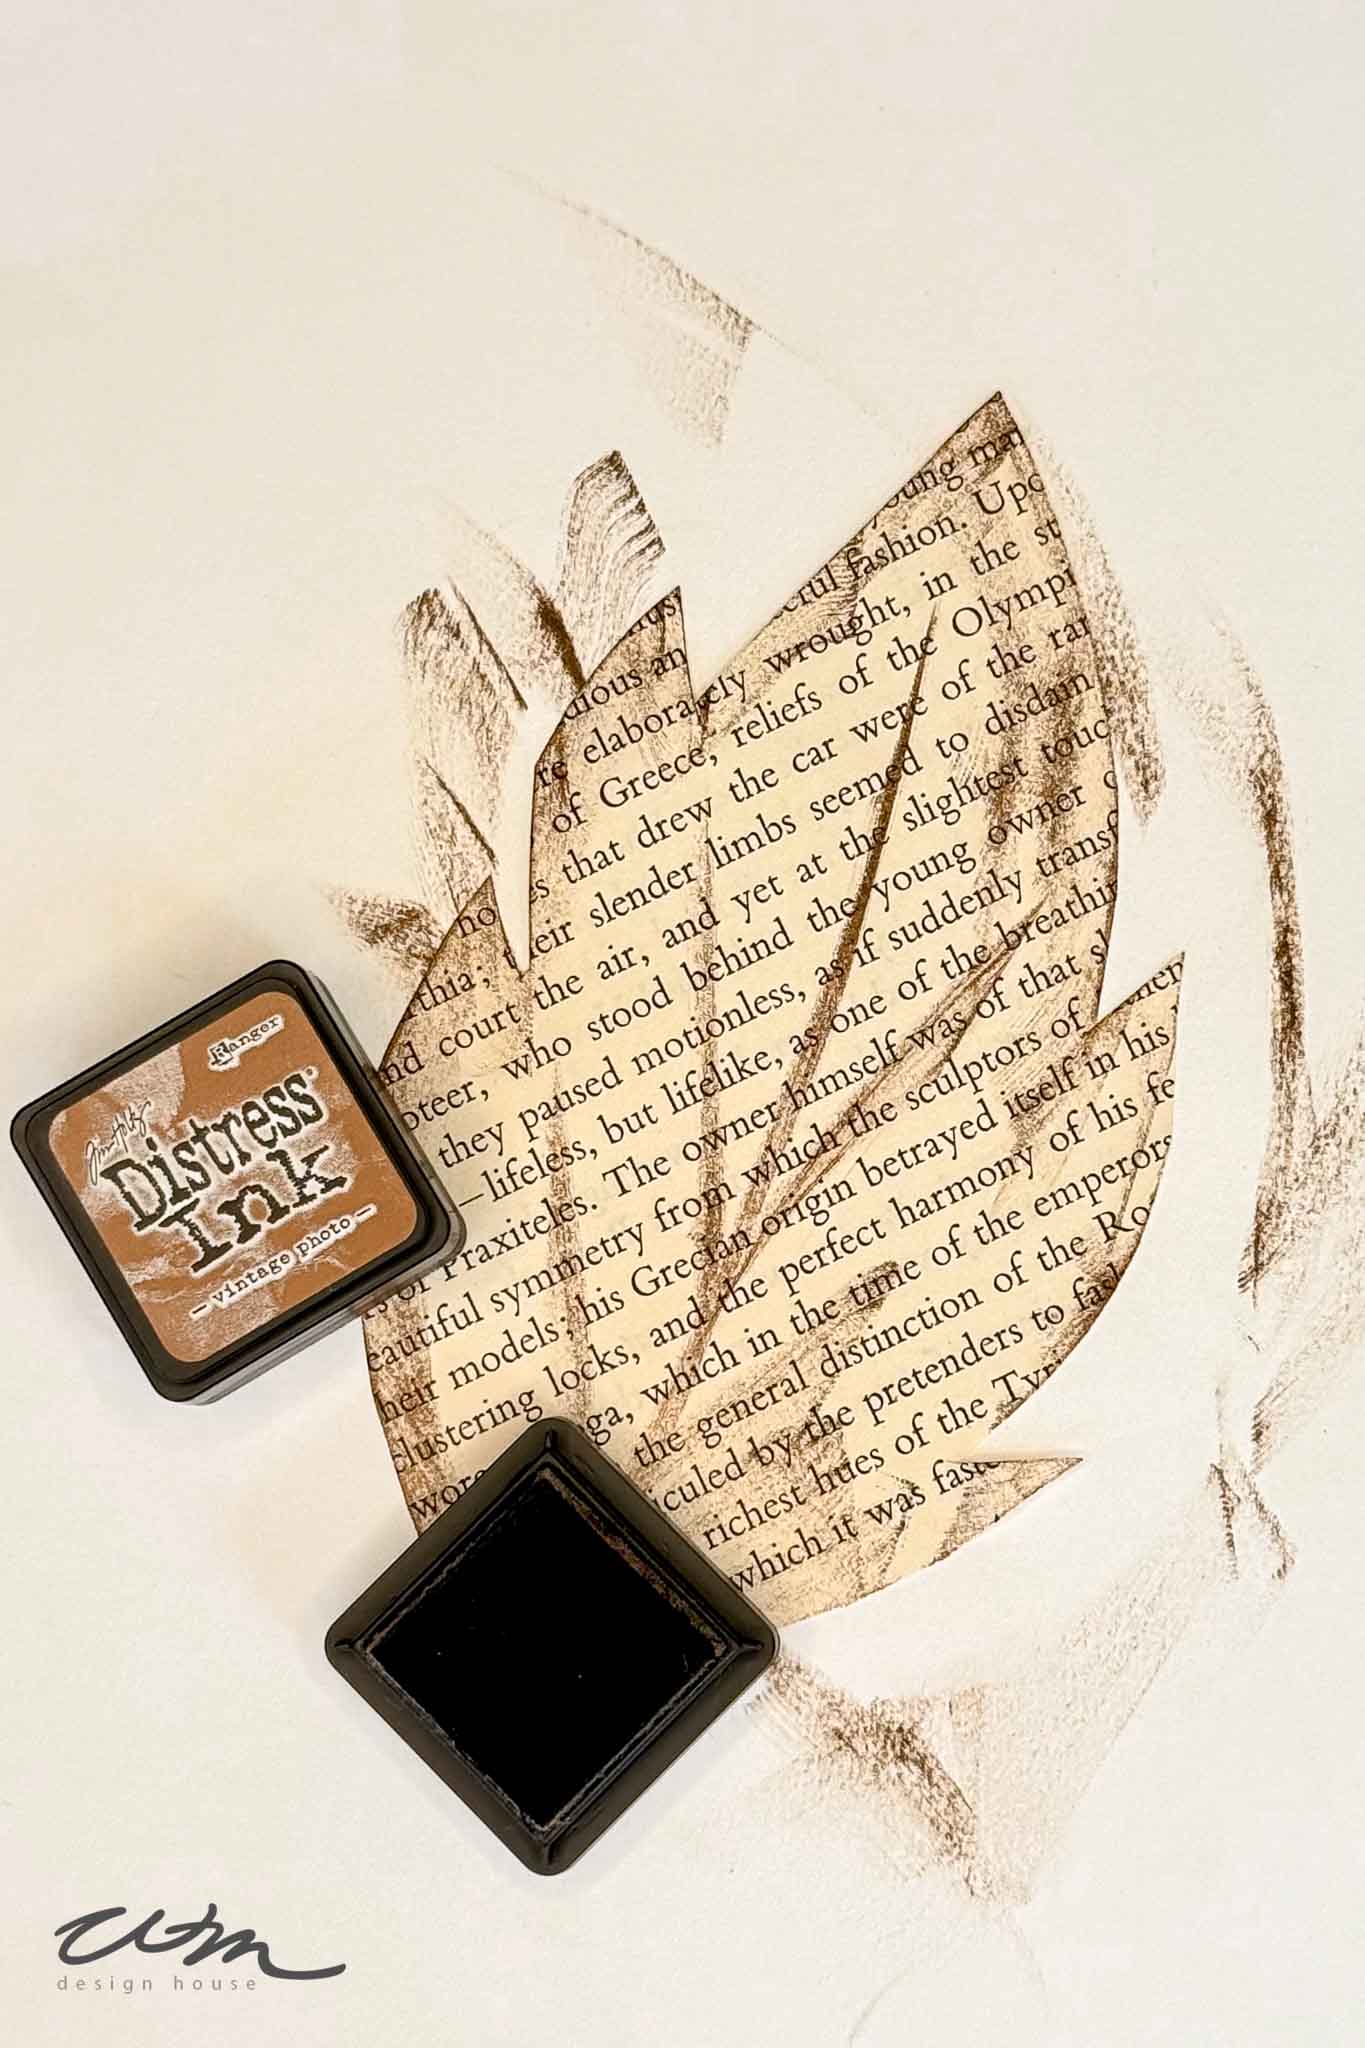 young
fashion. Upo
elaborately wrought, in the
of Greece, reliefs of the Olympi
that drew the car were of the
their slender limbs seemed to disdain
court the air, and yet at the slightest touc
who stood behind the young owner
they paused motionless, as if suddenly transf
—lifeless, but lifelike, as one of the breathin
Praxiteles. The owner himself was of that
eautiful symmetry from which the sculptors of
heir models; his Grecian origin betrayed itself in his
clustering locks, and the perfect harmony of his fe
ga, which in the time of the emperors
the general distinction of the Ro
iculed by the pretenders to
richest hues of the Tyr
which it was
Ranger
Tim Holtz
Distress®
Ink
— vintage photo —
wtm
design house